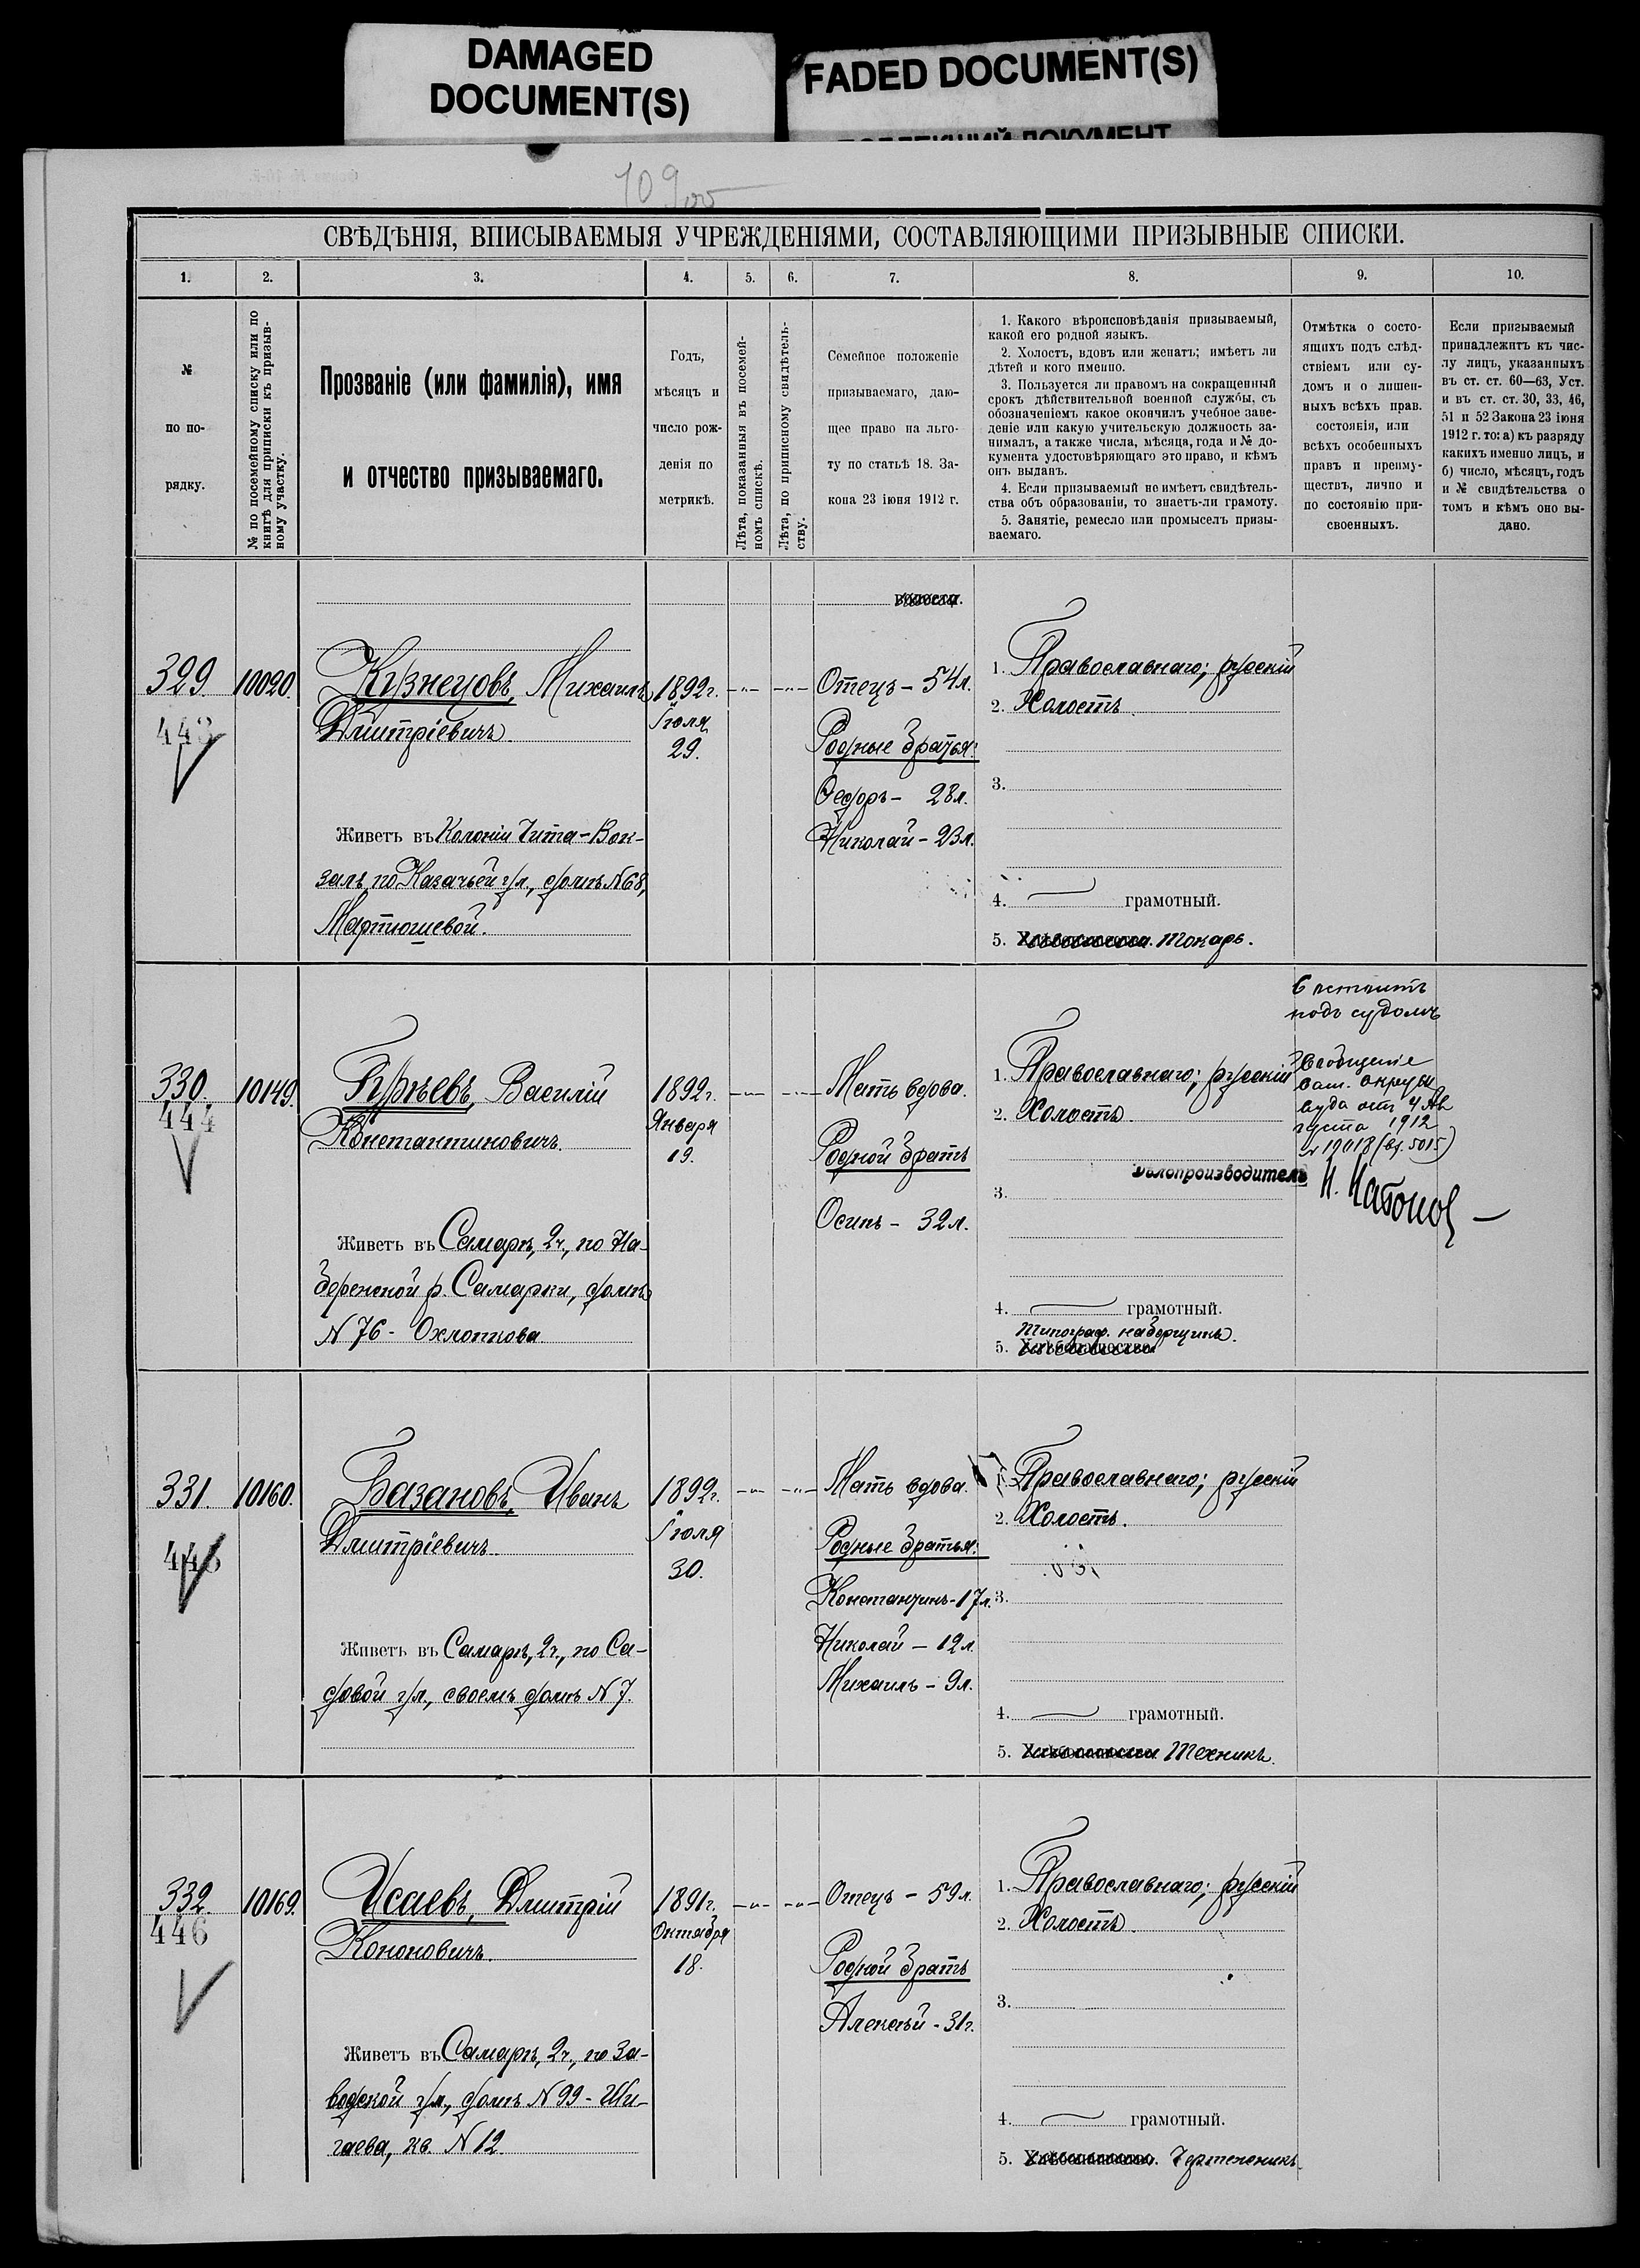 DAMAGED
DOCUMENT(S)
FADED DOCUMENT(S)
109
СВѢДѢНІЯ, ВПИСЫВАЕМЫЯ УЧРЕЖДЕНІЯМИ, СОСТАВЛЯЮЩИМИ ПРИЗЫВНЫЕ СПИСКИ.
1. 2. 3. 4. 5. 6. 7. 8. 9. 10.
№
по по-
рядку.
№ по посемейному списку или по
книгѣ для приписки къ призыв-
ному участку.
Прозваніе (или фамилія), имя
и отчество призываемаго.
Годъ,
мѣсяцъ и
число рож-
денія по
метрикѣ.
Лѣта, показанныя въ посемей-
номъ спискѣ.
Лѣта, по приписному свидѣтель-
ству.
Семейное положеніе
призываемаго, даю-
щее право на льго-
ту по статьѣ 18. За-
кона 23 іюня 1912 г.
1. Какого вѣроисповѣданія призываемый,
какой его родной языкъ.
2. Холостъ, вдовъ или женатъ; имѣетъ ли
дѣтей и кого именно.
3. Пользуется ли правомъ на сокращенный
срокъ дѣйствительной военной службы, съ
обозначеніемъ какое окончилъ учебное заве-
деніе или какую учительскую должность за-
нималъ, а также числа, мѣсяца, года и № до-
кумента удостовѣряющаго это право, и кѣмъ
онъ выданъ.
4. Если призываемый не имѣетъ свидѣтель-
ства объ образованіи, то знаетъ-ли грамоту.
5. Занятіе, ремесло или промыселъ призы-
ваемаго.
Отмѣтка о состо-
ящихъ подъ слѣд-
ствіемъ или су-
домъ и о лишен-
ныхъ всѣхъ прав.
состоянія, или
всѣхъ особенныхъ
правъ и преиму-
ществъ, лично и
по состоянію при-
своенныхъ.
Если призываемый
принадлежитъ къ чис-
лу лицъ, указанныхъ
въ ст. ст. 60—63, Уст.
и въ ст. ст. 30, 33, 46,
51 и 52 Закона 23 іюня
1912 г. то: а) къ разряду
какихъ именно лицъ, и
б) число, мѣсяцъ, годъ
и № свидѣтельства о
томъ и кѣмъ оно вы-
дано.
волости.
329.
443
10020.
Кузнецовъ, Михаилъ
Дмитріевичъ.
Живетъ въ Колоніи Чита-Вок-
залъ, по Казачьей ул., домъ № 68,
Мартюшевой.
1892 г.
Іюля
29.
Отецъ - 54 л.
Родные братья:
Ѳедоръ - 28 л.
Николай - 23 л.
1. Православнаго; русскій
2. Холостъ.
3.
4. грамотный.
5. Токарь.
330.
444
10149.
Гурьевъ, Василій
Константиновичъ.
Живетъ въ Самарѣ, 2ч., по На-
бережной р. Самарки, домъ
№ 76 - Охлопкова
1892 г.
Января
19.
Мать вдова.
Родной братъ
Осипъ - 32 л.
1. Православнаго; русскій
2. Холостъ.
Дѣлопроизводитель
3.
4. грамотный.
Типограф. наборщикъ.
5.
Состоитъ
подъ судомъ
Сообщеніе
Сам. Окруж
Суда отъ 4 Ав
густа 1912
№ 19018 (вх. 5015)
331.
445
10160.
Базановъ, Иванъ
Дмитріевичъ.
Живетъ въ Самарѣ, 2ч., по Са-
довой ул., своемъ домѣ № 7.
1892 г.
Іюля
30.
Мать вдова.
Родные братья:
Константинъ - 17 л.
Николай - 12 л.
Михаилъ - 9 л.
1. Православнаго; русскій
2. Холостъ.
3.
4. грамотный.
5. Техникъ.
332.
446
10169.
Исаевъ, Дмитрій
Кононовичъ.
Живетъ въ Самарѣ, 2ч., по За-
водской ул., домъ № 99 - Ши-
гаева, кв. № 12.
1891 г.
Октября
18.
Отецъ - 59 л.
Родной братъ
Алексѣй - 31 г.
1. Православнаго; русскій
2. Холостъ.
3.
4. грамотный.
5. Чертежникъ.